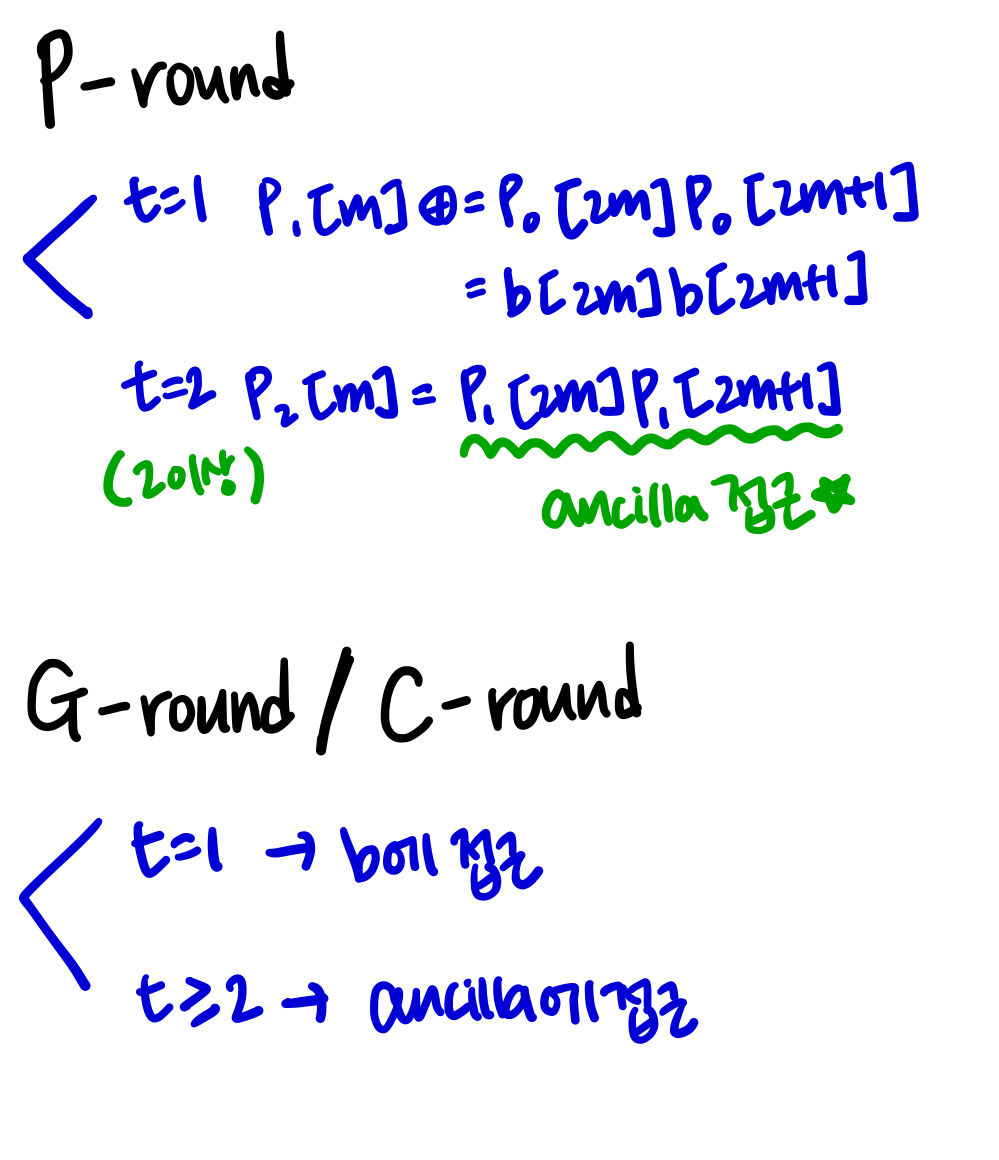 P-round
t=1 P₁[m]⊕=P₀[2m]P₀[2m+1]
=b[2m]b[2m+1]
t=2 P₂[m]=P₁[2m]P₁[2m+1]
(2이상)
ancilla 접근★
G-round / C-round
t=1 → b에 접근
t≥2 → ancilla에 접근